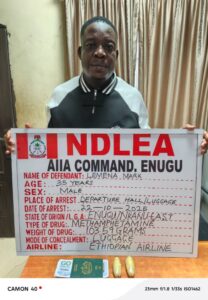 NDLEA
AIIA COMMAND. ENUGU
NAME OF DEFENDANT: MARK
AGE: 35 YEARS
SEX: MALE
PLACE OF ARREST: DEPARTURE HALL/LUGGAGE
DATE OF ARREST: 22-10-2025
STATE OF ORIGIN/L.G.A: ENUGU/NKANU EAST
TYPE OF DRUG: METHAMPHETAMINE
WEIGHT OF DRUG: GRAMS
MODE OF CONCEALMENT: LUGGAGE
AIRLINE: ETHIOPIAN AIRLINE
CAMON 40
25mm f/1.8 1/33s ISO1462